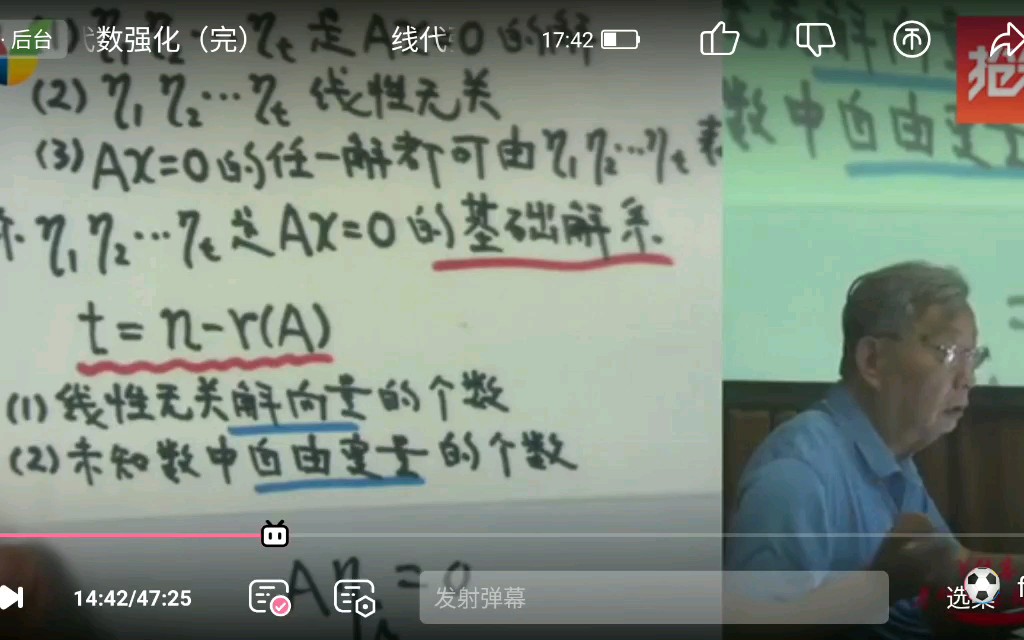 后台 代数强化（完） 线代 17:42
(1) η1 η2 ⋯ ηt 是 Ax=0 的解
(2) η1 η2 ⋯ ηt 线性无关
(3) Ax=0 的任一解都可由 η1 η2 ⋯ ηt 表
称 η1 η2 ⋯ ηt 是 Ax=0 的基础解系.
t = n-r(A)
(1) 线性无关解向量的个数
(2) 未知数中自由变量的个数
Aηi = 0
无解向量
数中自由变量
抢
14:42/47:25 发射弹幕 选集